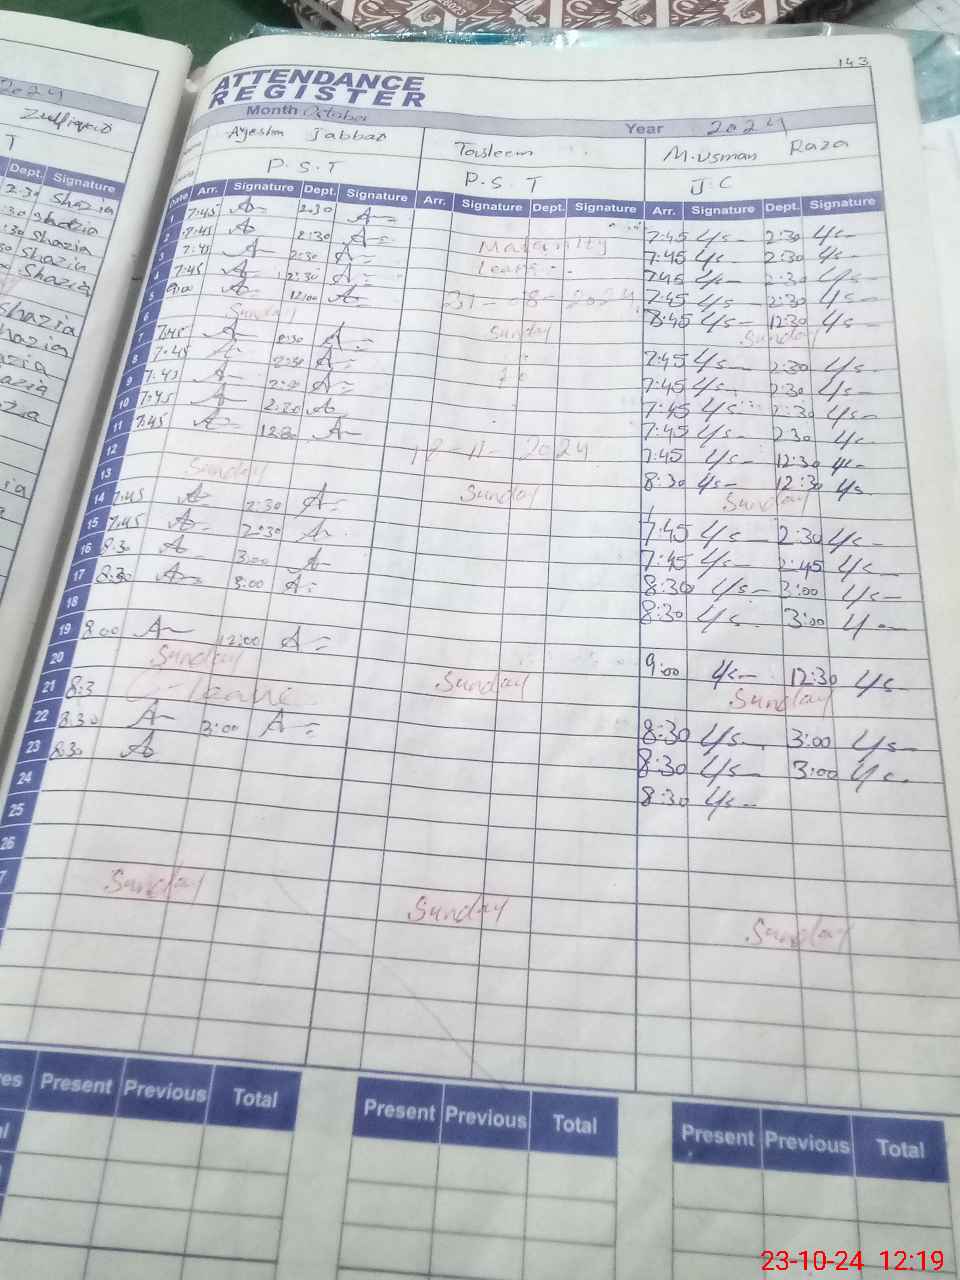 143
ATTENDANCE
REGISTER
Month October Year 2024
Ayesha Jabbar Tasleem M.Usman Raza
P.S.T P.S.T J.C
Date Arr. Signature Dept. Signature Arr. Signature Dept. Signature Arr. Signature Dept. Signature
2024
Zulfiqar
T
Dept. Signature
2:30 Shazia
:30 Shazia
:30 Shazia
Shazia
Shazia
Shazia
1 7:45 2:30 7:45 2:30
2 7:45 2:30 Maternity 7:45 2:30
3 7:45 2:30 Leave 7:45 2:30
4 7:45 2:30 7:45 2:30
5 8:00 12:00 31-08-2024 8:45 12:30
6 Sunday Sunday Sunday
7 7:45 2:30 7:45 2:30
8 7:45 2:30 To 7:45 2:30
9 7:45 2:30 7:45 2:30
10 7:45 2:30 7:45 2:30
11 7:45 12:30 7:45 12:30
12 18-11-2024 8:30 12:30
13 Sunday Sunday Sunday
14 7:45 2:30 7:45 2:30
15 7:45 2:30 7:45 2:45
16 8:30 3:00 8:30 3:00
17 8:30 3:00 8:30 3:00
18
19 9:00 12:00 9:00 12:30
20 Sunday Sunday Sunday
21 8:3 C-leave 8:30 3:00
22 8:30 3:00 8:30 3:00
23 8:30 8:30
24
25
26
7 Sunday Sunday Sunday
Present Previous Total Present Previous Total Present Previous Total
23-10-24 12:19